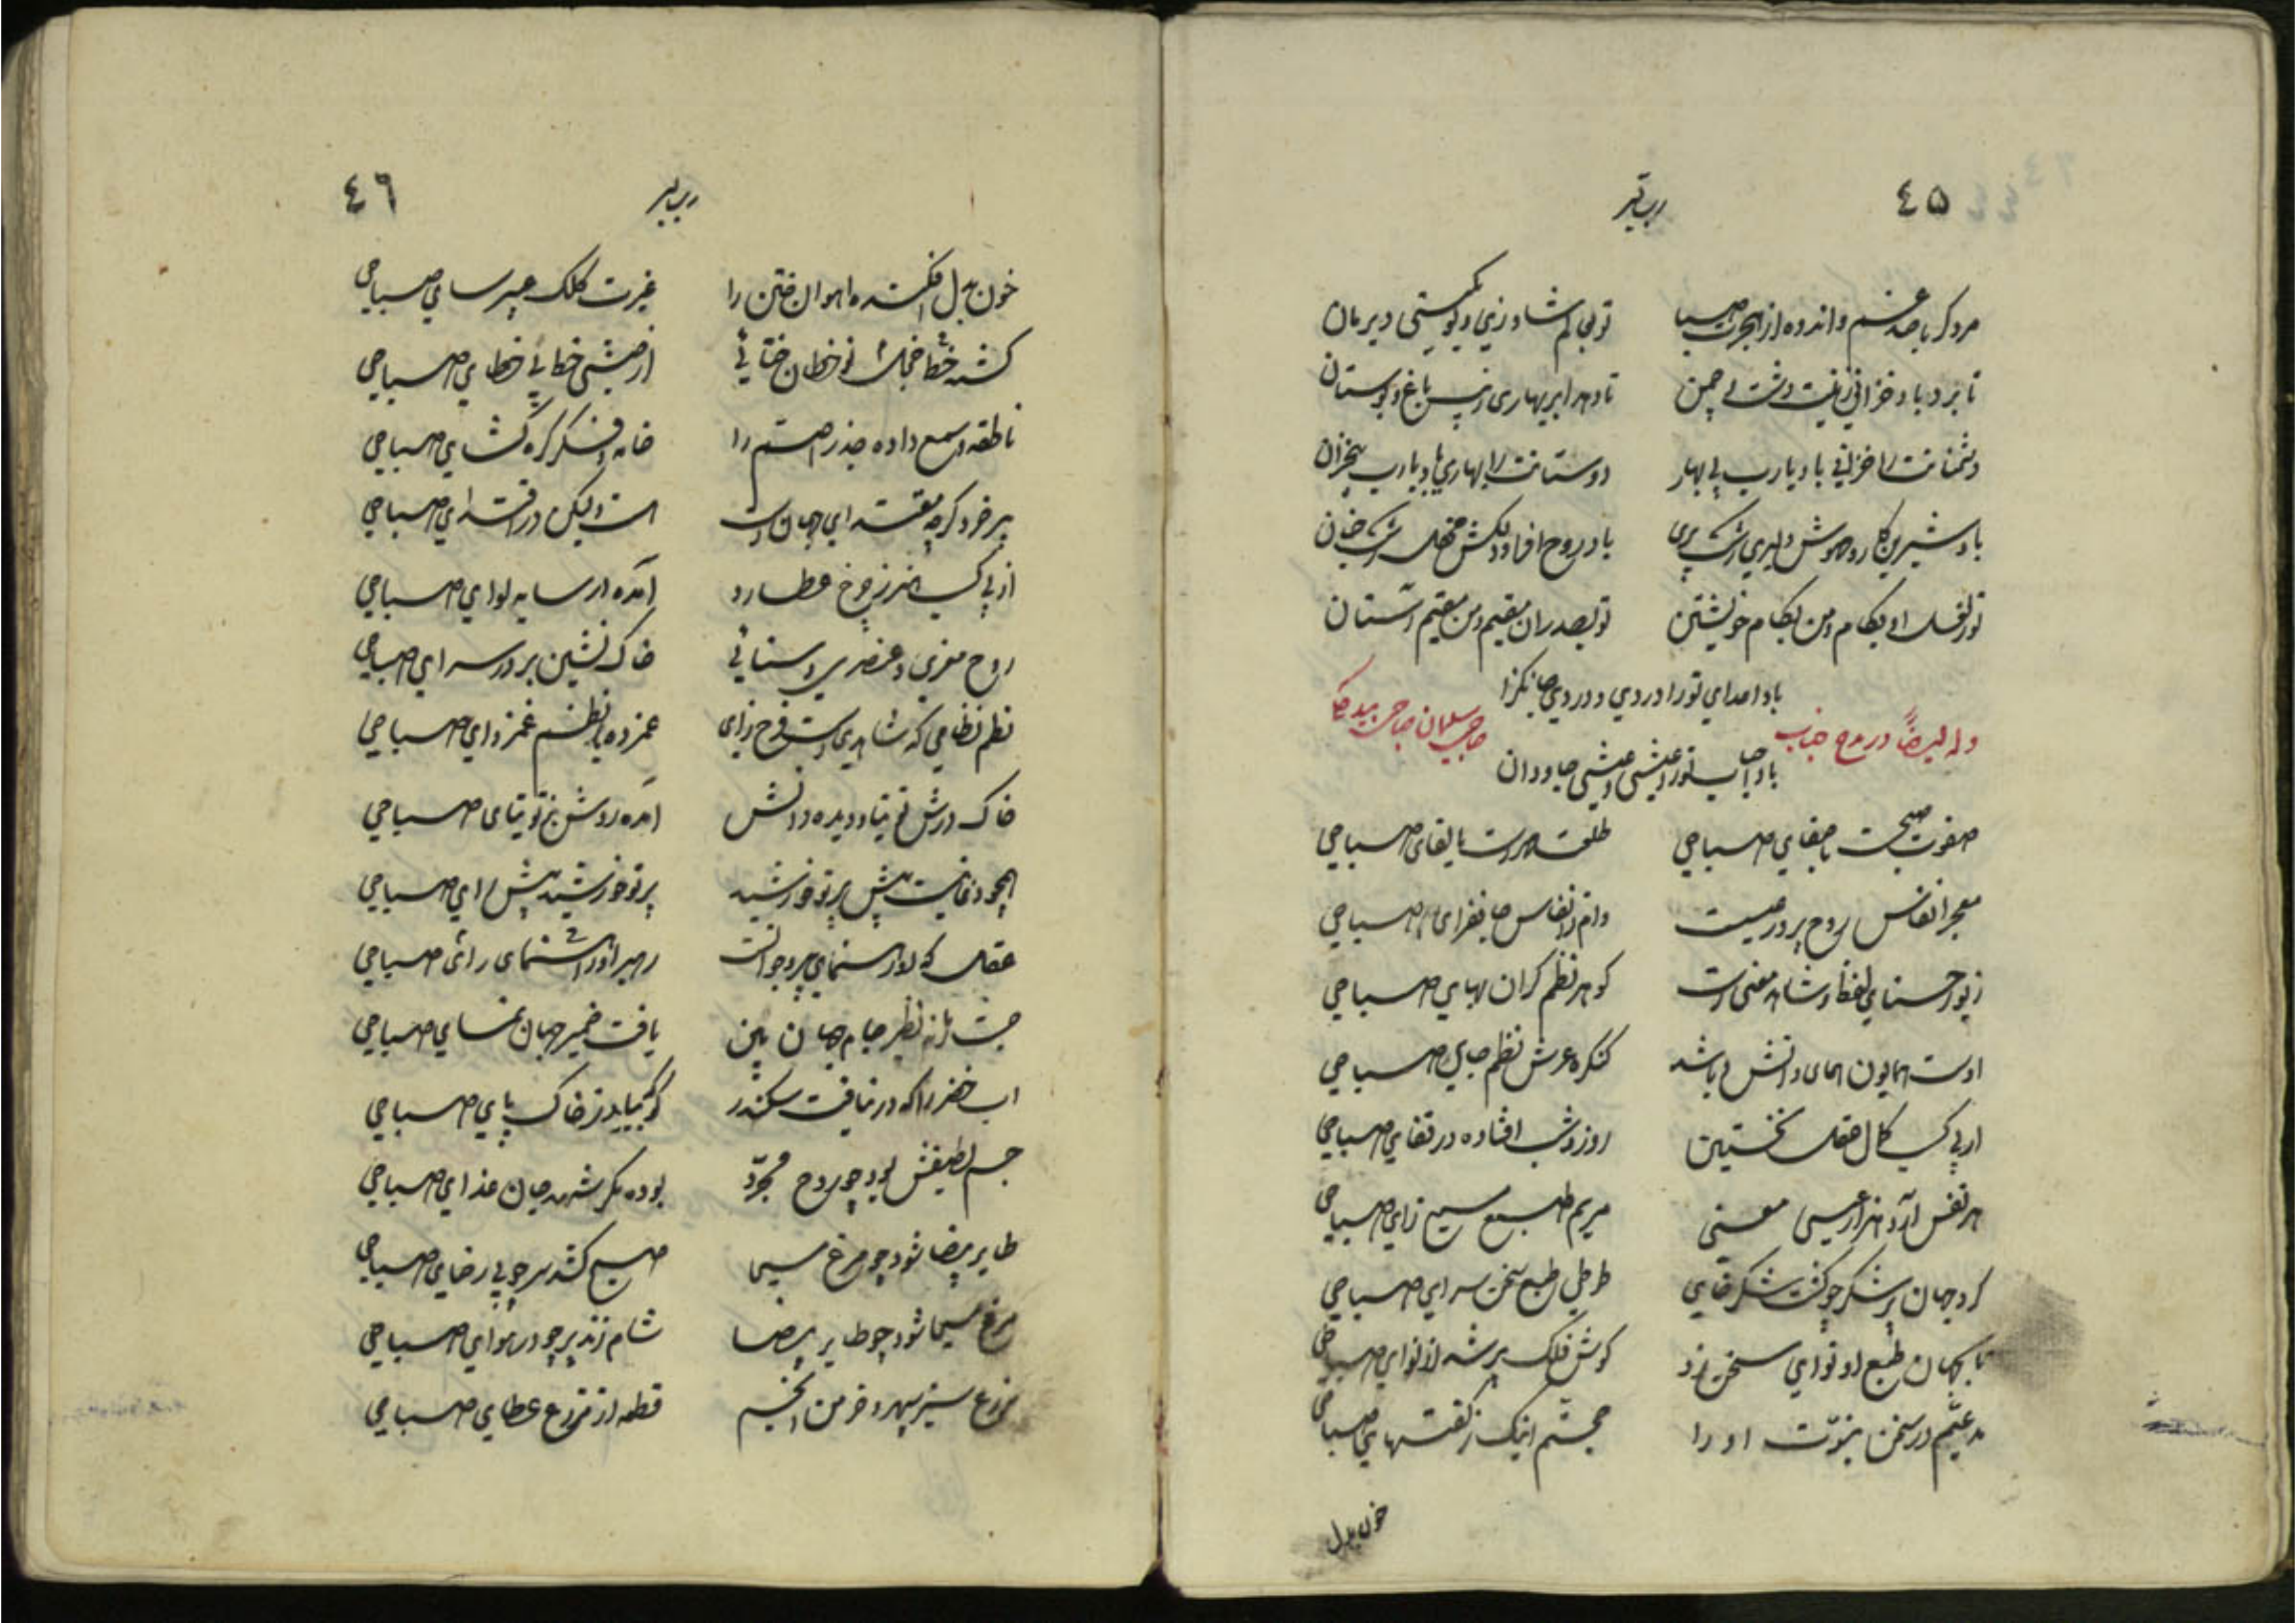 ٤٥
مرد کر با صد غم و اندوه از هجرت صبا
تو بی غم شاد زی و بکیتی دیرمان
تا برد باد خزانی زینت و شت چمن
تا دهد ابر بهاری زیب باغ و بوستان
دشمنانت را خزانی باد یارب بی بهار
دوستانت را بهاری باد یارب بیخزان
باد شیرین کار و مهوش دلبری رشک پری
باد روح افزا و دلکش محفلی رشک جنان
بکام و من بکام خویشتن
تو بصدر ان مقیم و من مقیم استان
باد اعدای تو را دردی و دردی جانکزا
وله ایضاً در مدح جناب حاجی سلیمان صباحی بیدکلی
باد احباب تو را عیشی و عیشی جاودان
صفوت صبحست با صفای صباحی
طلعت مهرست یا لقای صباحی
معجز انفاس روح پرور عیسیست
وام ز انفاس جانفزای صباحی
زیور حسنای لفظ و شاهد معنی است
کوهر نظم کران بهای صباحی
اوست همایون همای دانش و باشد
کنکره عرش نظم جای صباحی
از پی کسب کمال عقل نخستین
روز و شب افتاده در قفای صباحی
هر نفس آرد هزار عیسی معنی
مریم طبع مسیح زای صباحی
کرد جهان پر شکر چو کشت شکرخای
طوطی طبع سخن سرای صباحی
تا بجهان طبع او نوای سخن زد
کوش فلک پر شد از نوای صباحی
مدعیم در سخن نبوّت او را
حجتم اینک ز کفتهای صباحی
خون بدل
٤٦
خون بدل افکنده اهوان ختن را
غیرت کلک عبیر سای صباحی
کشته خطا نو خطان ختائی
از حبشی خطای صباحی
ناطقه و سمع داده جذر اصم را
خامه و فکر کره کشای صباحی
پیر خرد کرچه مقتدای جهان است
است ولیکن در اقتدای صباحی
از پی کسب هنر ز چرخ عطارد
آمده در سایه لوای صباحی
روح معزی و عنصری و سنائی
خاک نشین بر در سرای صباحی
نظم نظامی که شاهدیست فرح زای
غمزده با نظم غمزدای صباحی
خاک درش توتیا و دیده دانش
آمده روشن ز توتیای صباحی
همچو ذراتست پیش پرتو خورشید
پرتو خورشید پیش رای صباحی
عقل که او رهنمای پیر و جوانست
رهبر او رهنمای رای صباحی
جست زمانه نظیر جام جهان بین
یافت ضمیر جهان نمای صباحی
اب خضر را که در نیافت سکندر
کو بیابد ز خاک پای صباحی
جسم لطیفش بود چو روح مجرّد
بوده مکر شهد جان غذای صباحی
طایر بیضا شود چو مرغ مسیحا
صبح کشد سر چو بی رضای صباحی
مرغ مسیحا شود چو طایر بیضا
شام زند پر چو در هوای صباحی
مزرع سبز سپهر و خرمن انجم
قطعه از مزرع عطای صباحی